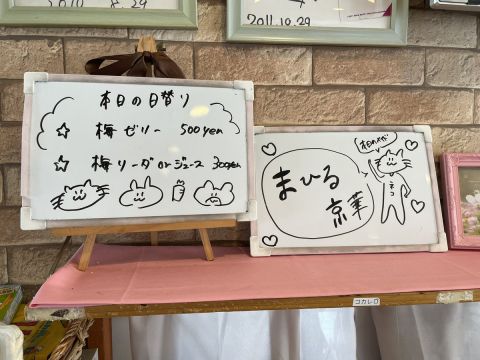 2011.10.29
10.29
本日の日替り
☆ 梅ゼリー 500yen
☆ 梅リーダ or ジュース 300yen
まひる
京華
ネコ
コカレロ